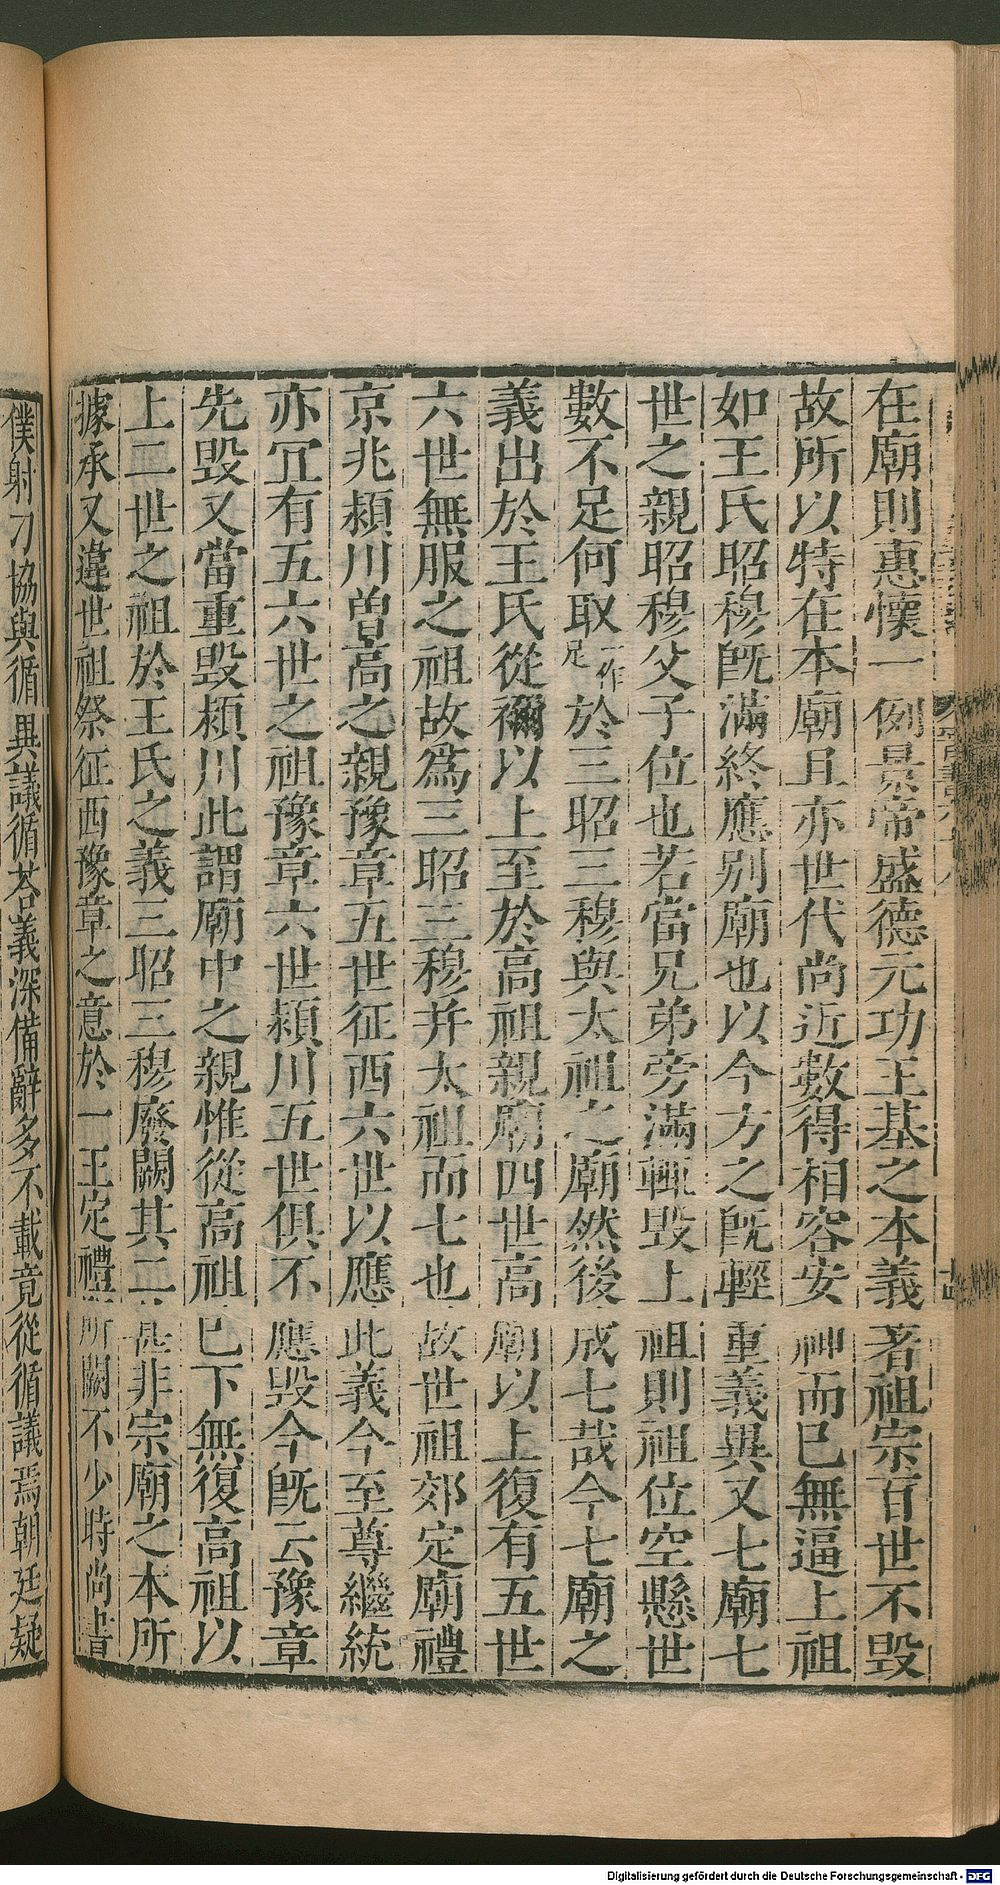 在廟則惠懷一例景帝盛德元功王基之本義著祖宗百世不毀
故所以特在本廟且亦世代尚近數得相容安神而已無逼上祖
如王氏昭穆旣滿終應別廟也以今方之旣輕重義異又七廟七
世之親昭穆父子位也若當兄弟旁滿輒毀上祖則祖位空懸世
數不足何取一作足於三昭三穆與太祖之廟然後成七哉今七廟之
義出於王氏從禰以上至於高祖親廟四世高廟以上復有五世
六世無服之祖故爲三昭三穆并太祖而七也故世祖郊定廟禮
京兆潁川曽高之親豫章五世征西六世以應此義今至尊繼統
亦冝有五六世之祖豫章六世潁川五世俱不應毀今旣云豫章
先毀又當重毀潁川此謂廟中之親惟從高祖巳下無復高祖以
上二世之祖於王氏之義三昭三穆廢闕其二甚非宗廟之本所
據承又違世祖祭征西豫章之意於一王定禮所闕不少時尚書
僕射刁協與循異議循荅義深備辭多不載竟從循議焉朝廷疑
Digitalisierung gefördert durch die Deutsche Forschungsgemeinschaft - DFG